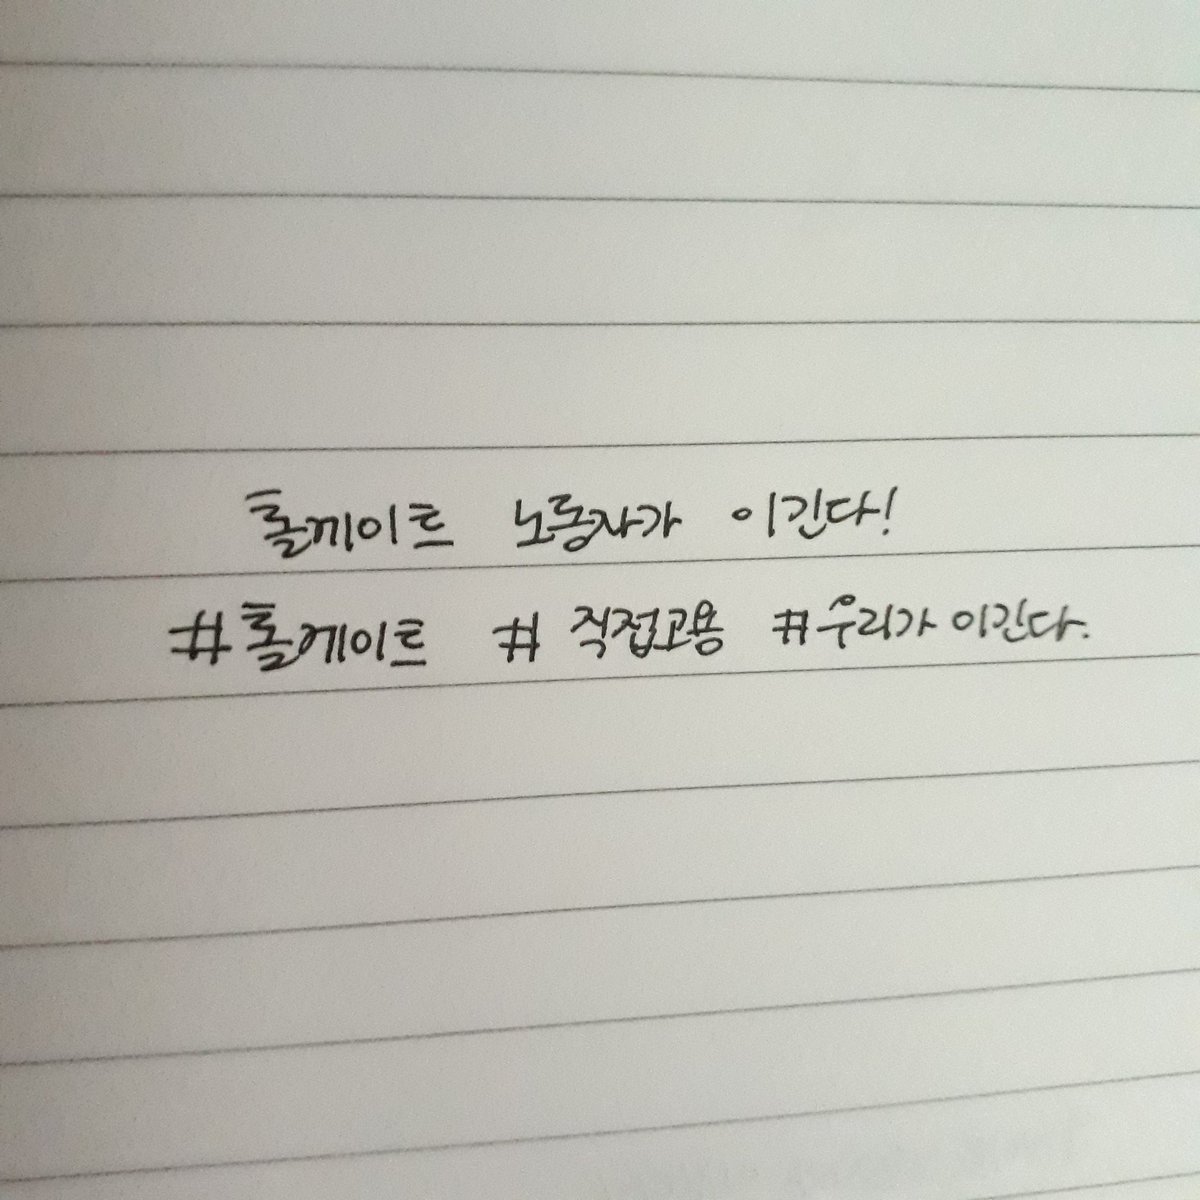 톨게이트 노동자가 이긴다!
#톨게이트 # 직접고용 #우리가 이긴다.